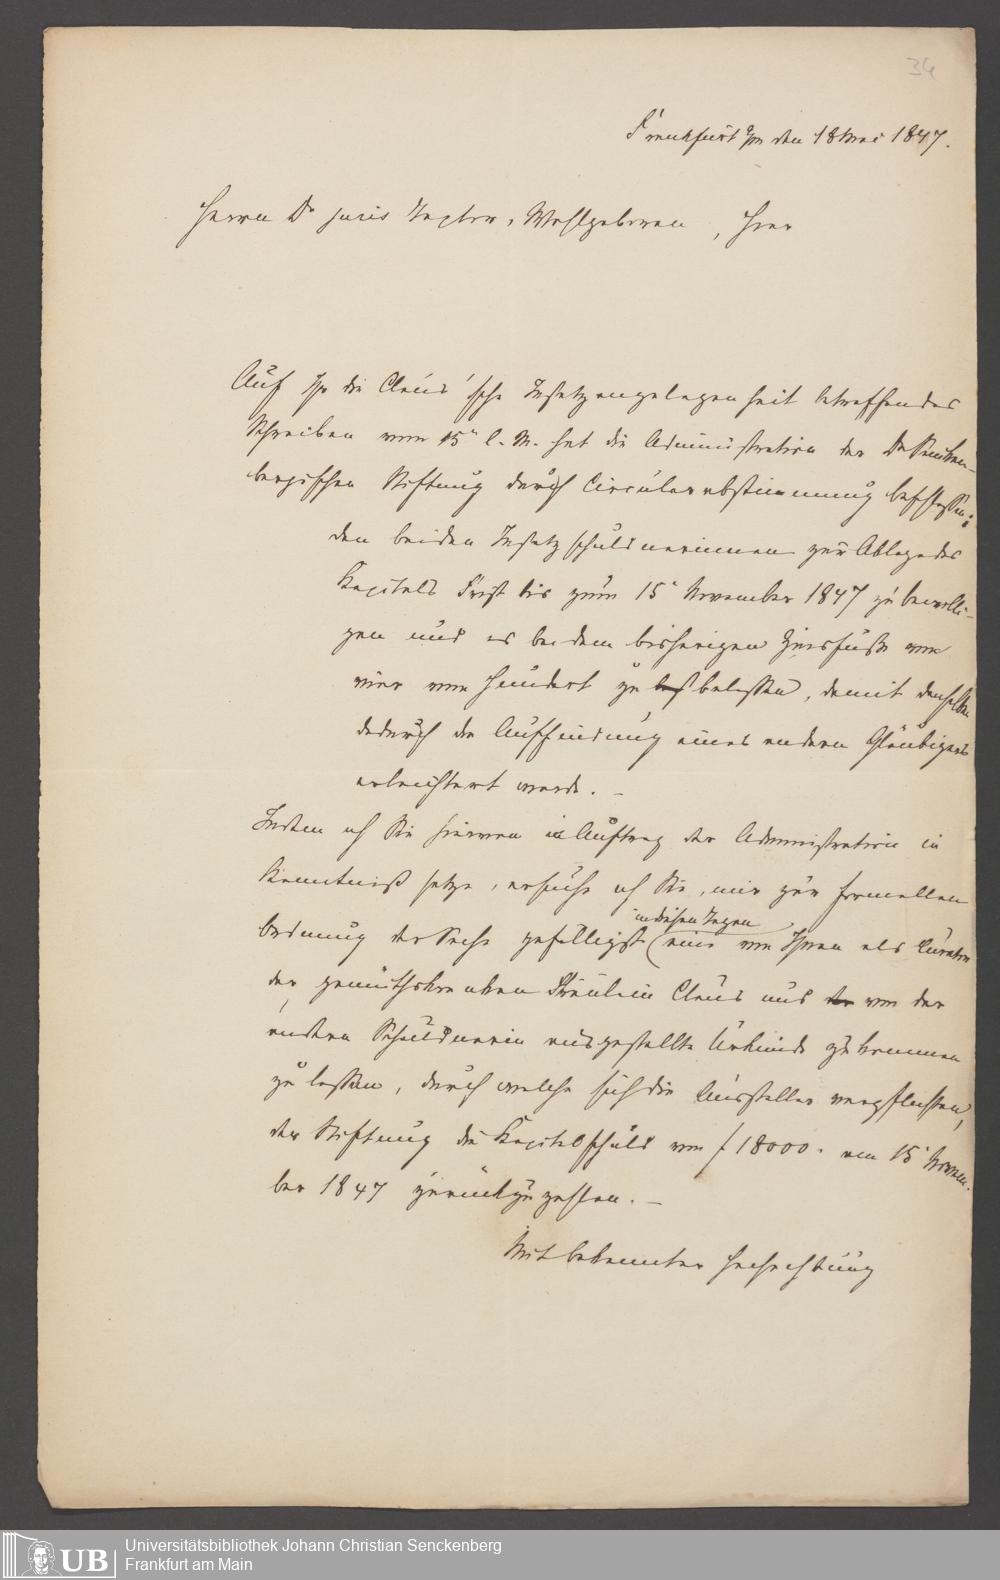 34
Frankfurt a/m den 18 Mai 1847.
Herrn Dr juris Textor, Wohlgeboren, Hier
Auf Ihr die Claus'sche Insatzangelegenheit betreffendes
Schreiben vom 15n l. M. hat die Administration der Dr Sencken-
bergischen Stiftung durch Circularabstimmung beschlossen:
den beiden Insatzschuldnerinnen zur Ablage des
Kapitals Frist bis zum 15n November 1847 zu bewilli-
gen und es bei dem bisherigen Zinsfuße von
vier vom Hundert zu belassen, damit denselben
dadurch die Auffindung eines andern Gläubigers
erleichtert werde. –
Indem ich Sie hiervon in Auftrag der Administration in
Kenntniß setze, ersuche ich Sie, mir zur formellen
Ordnung der Sache gefälligst in diesen Tagen eine von Ihnen als Curator
der gemüthskranken Fräulein Claus und von der
andern Schuldnerin ausgestellte Urkunde zukommen
zu lassen, durch welche sich die Aussteller verpflichten,
der Stiftung die Kapitalschuld von f 18000. am 15n Novem-
ber 1847 zurückzuzahlen. –
Mit bekannter Hochachtung
UB
Universitätsbibliothek Johann Christian Senckenberg
Frankfurt am Main